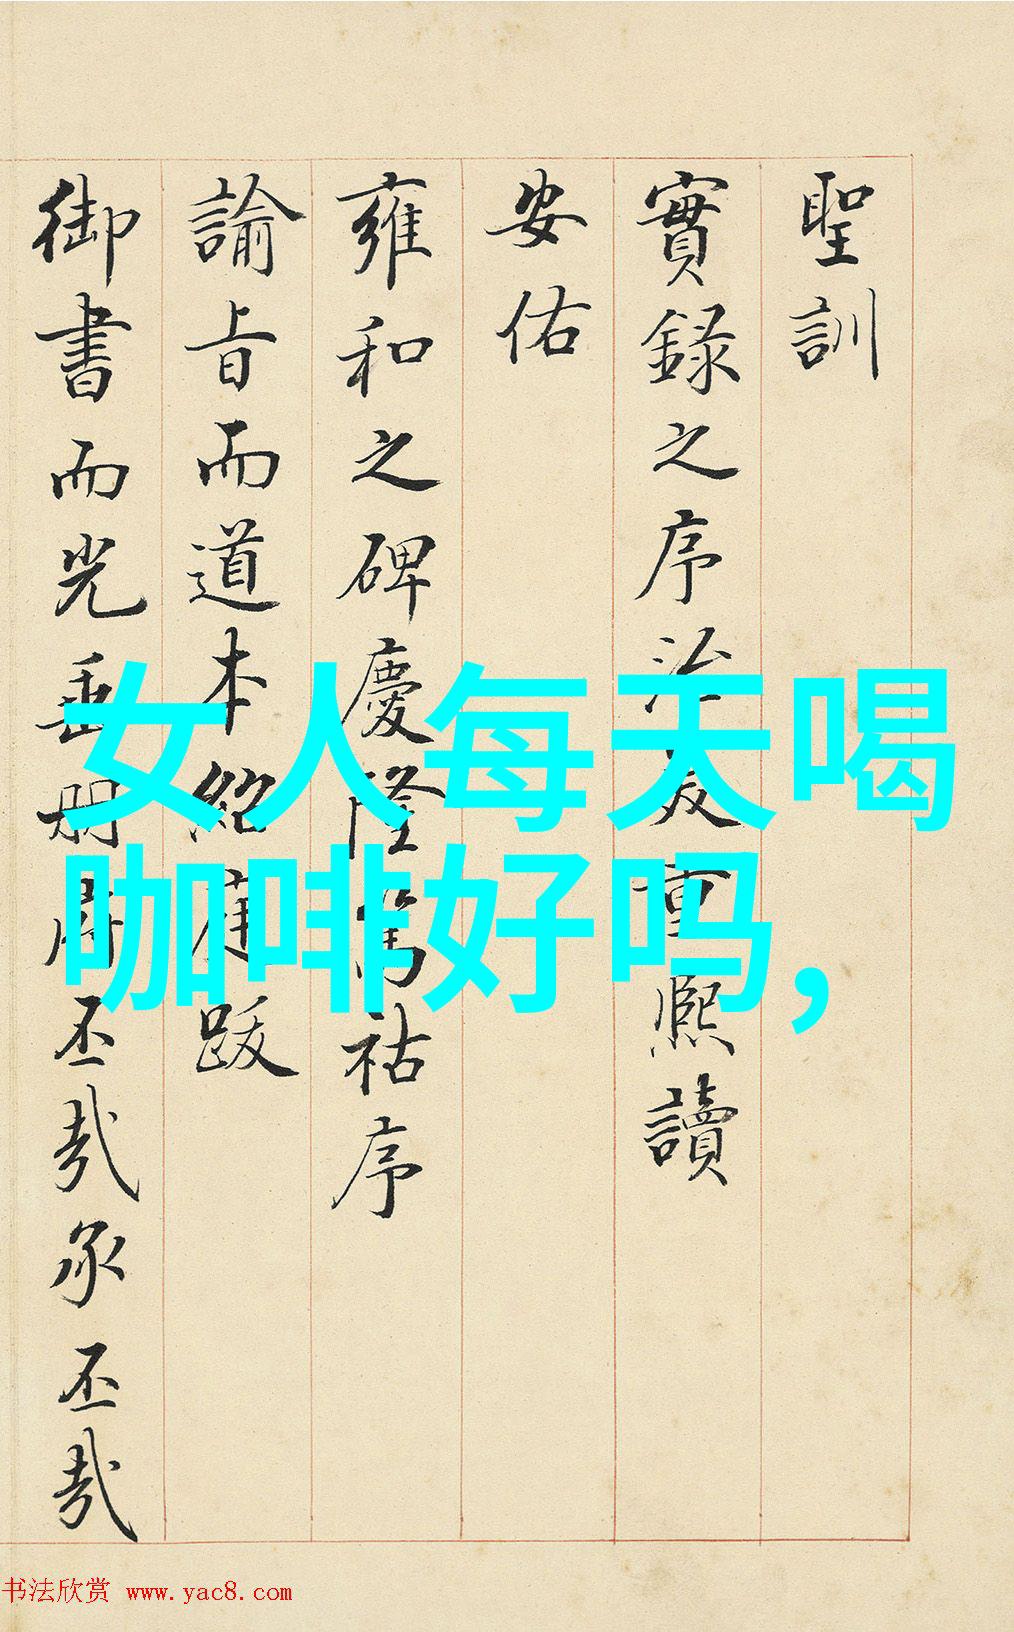 聖訓
實錄之序治法重熙讀
安佑
雍和之碑慶隆篤祜序
諭旨而道本紹庭跋
御書而光垂冊府丕哉承丕哉
女人每天喝
咖啡好吗,
书法欣赏 www.yac8.com